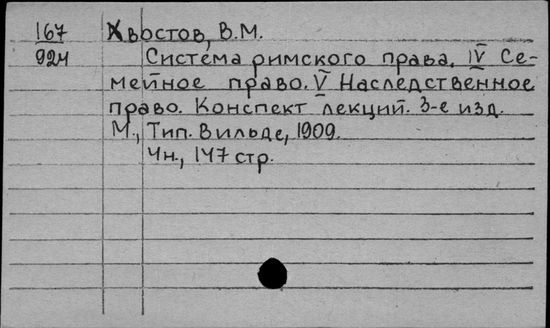 167 Хвостов, В.М.
924 Система римского права. IV Се-
мейное право. V Наследственное
право. Конспект лекций. 3-е изд.
М., Тип. Вильде, 1909.
4н., 147 стр.